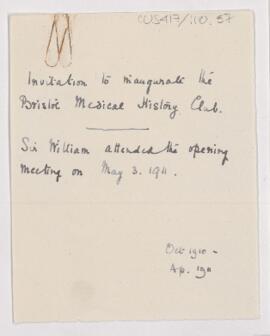 CUS417/110.57
Invitation to inaugurate the
Bristol Medical History Club.
Sir William attended the opening
meeting on May 3. 1911.
Oct 1910 -
Ap. 1911